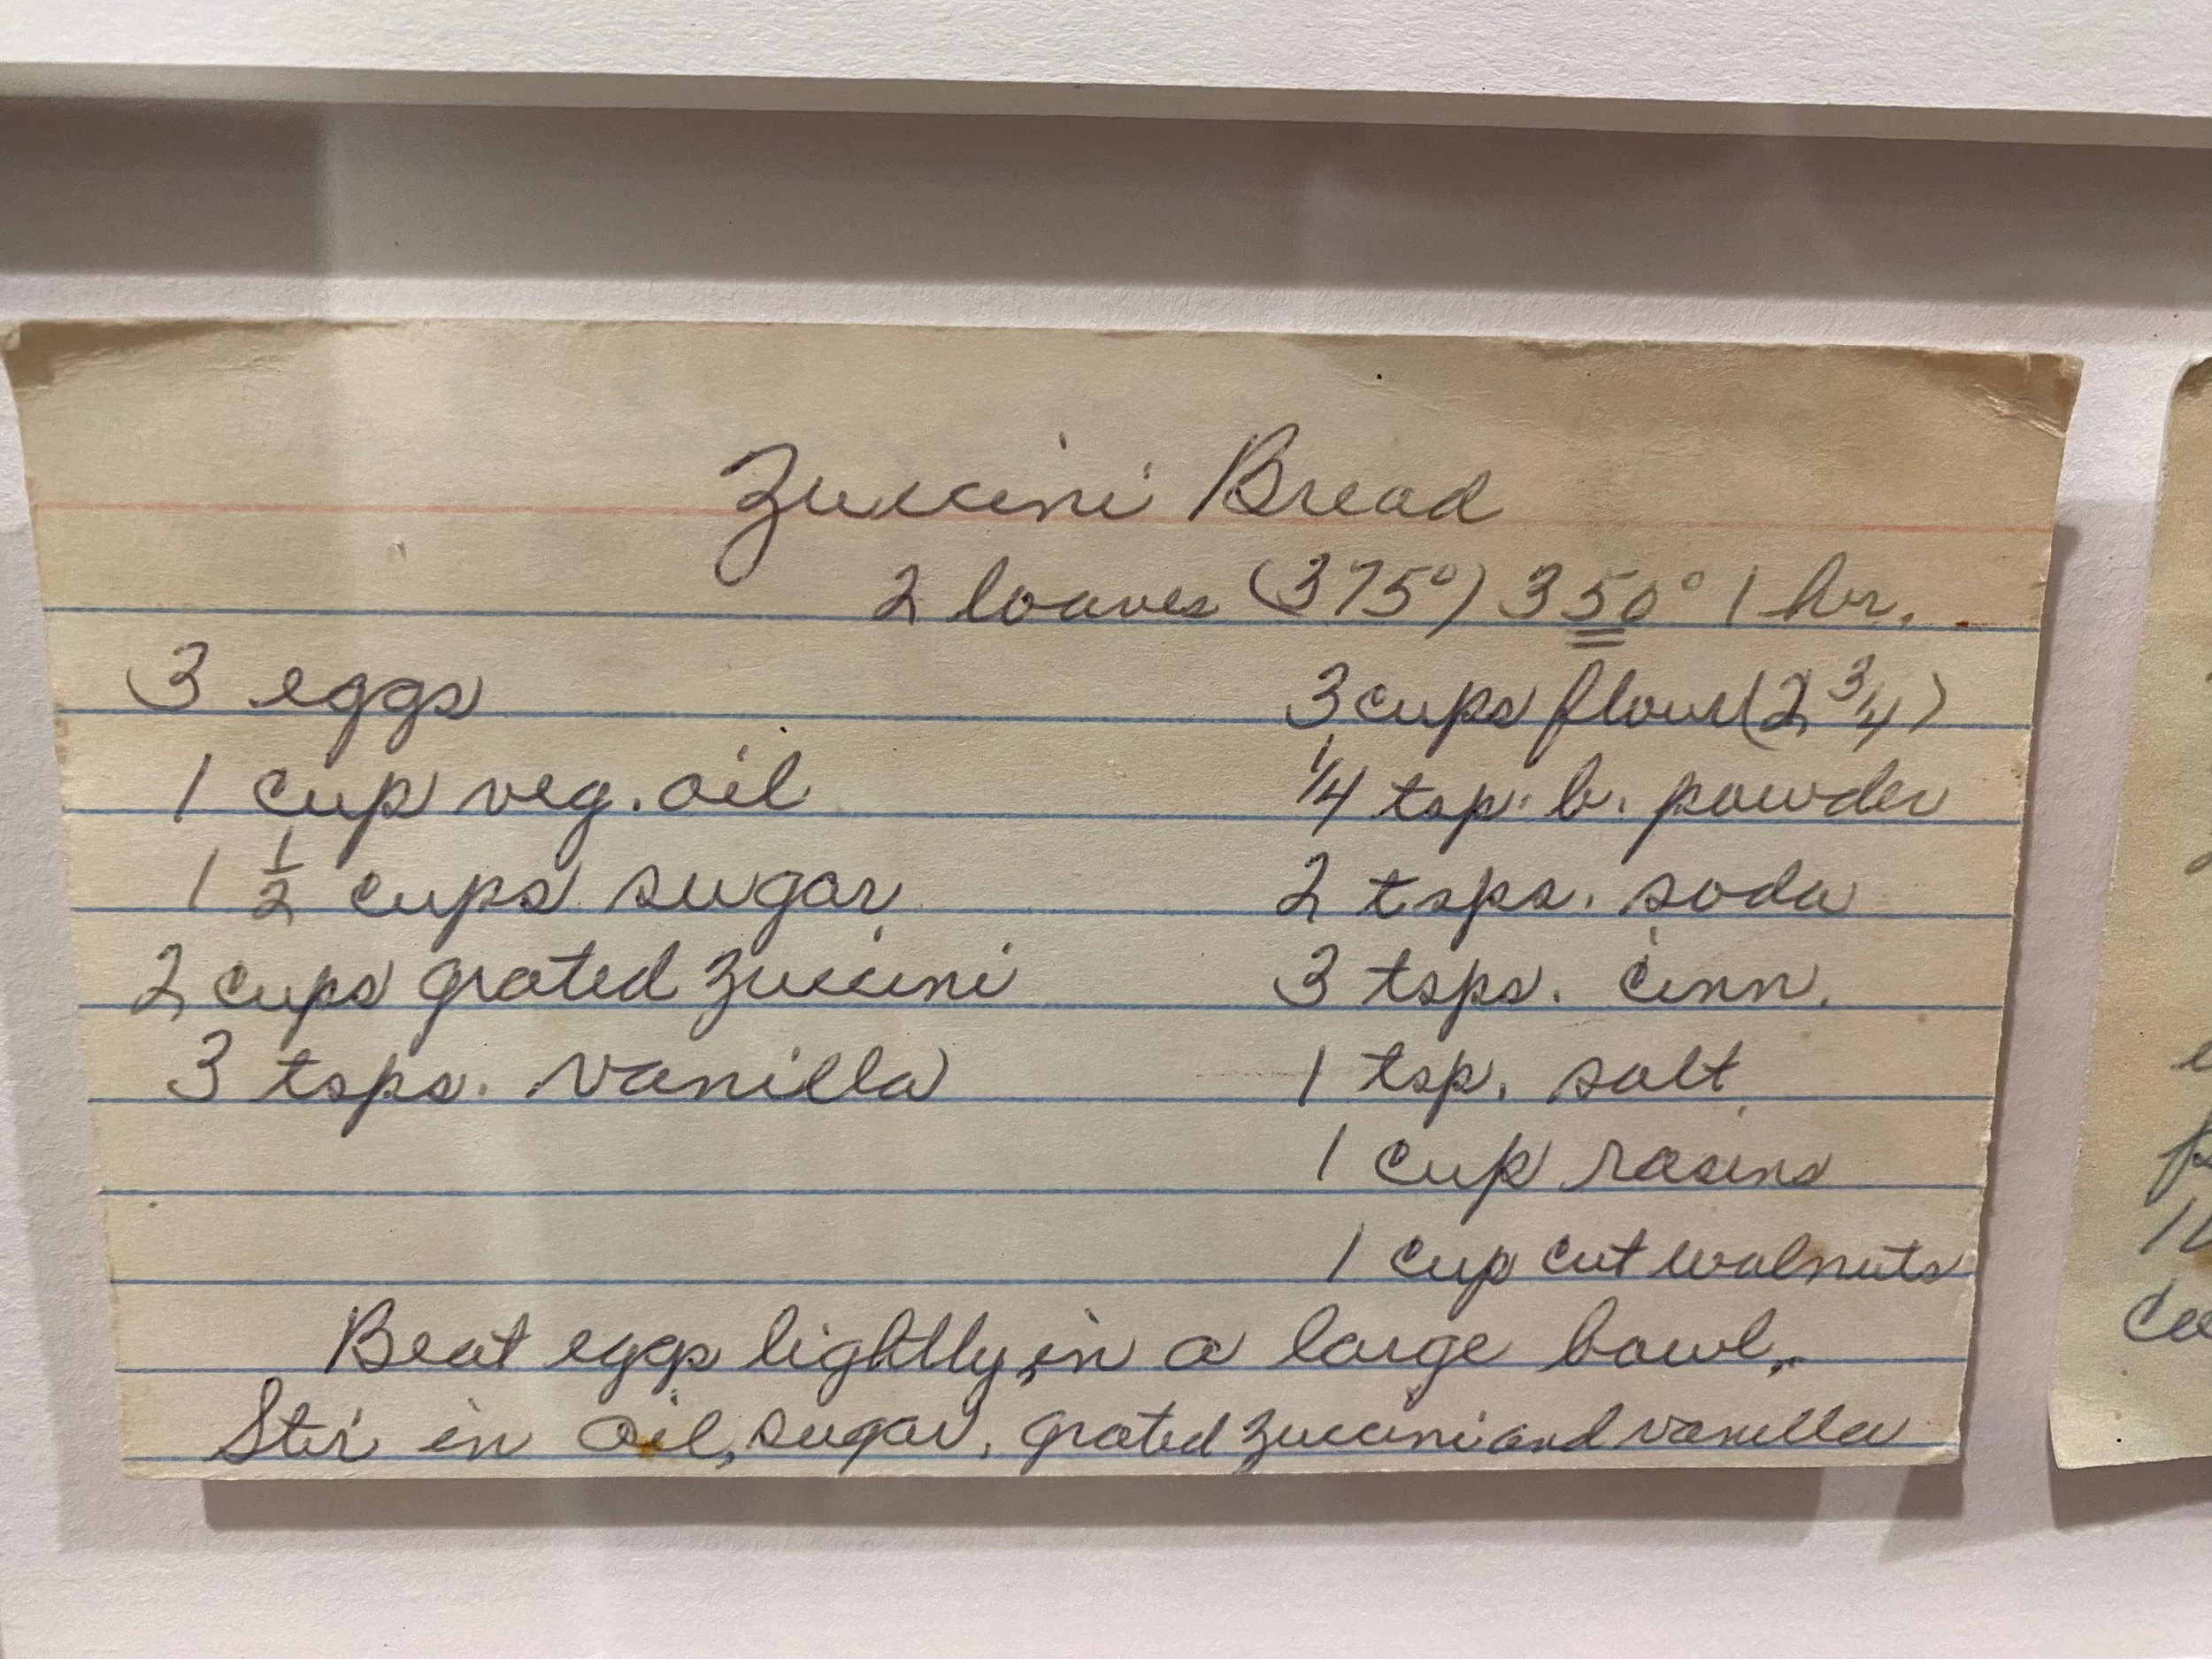 Zuccini Bread
2 loaves (375°) 350° 1 hr.
3 eggs
1 cup veg. oil
1 1/2 cups sugar
2 cups grated zuccini
3 tsps. vanilla
3 cups flour (2 3/4)
1/4 tsp. b. powder
2 tsps. soda
3 tsps. cinn.
1 tsp. salt
1 cup rasins
1 cup cut walnuts
Beat eggs lightly, in a large bowl.
Stir in oil, sugar, grated zuccini and vanilla